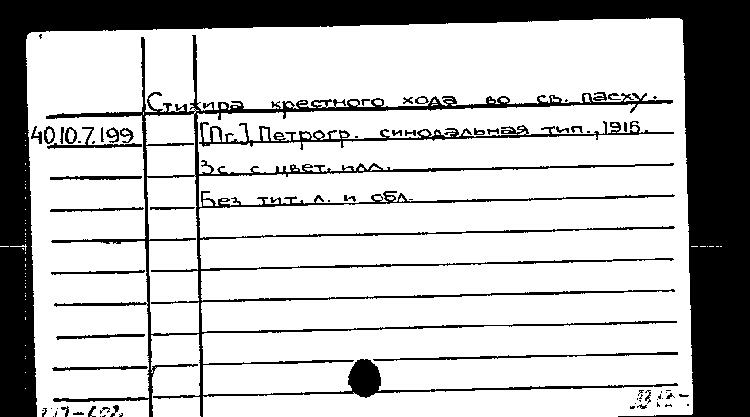 Стихира крестного хода во св. пасху.
40.10.7.199 [Пг.], Петрогр. синодальная тип., 1916.
3 с. с цвет. илл.
Без тит. л. и обл.